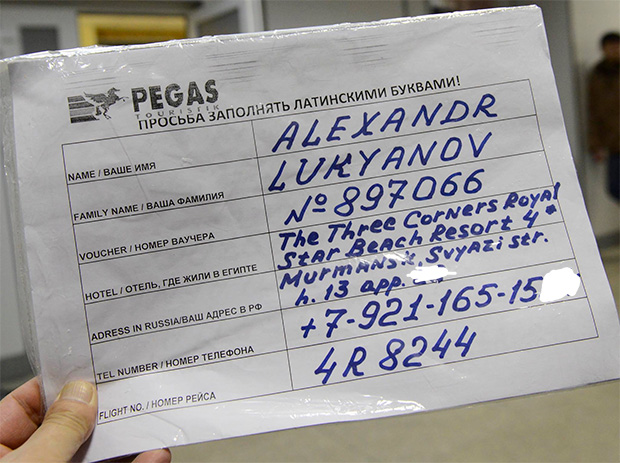 PEGAS
TOURISTIK
ПРОСЬБА ЗАПОЛНЯТЬ ЛАТИНСКИМИ БУКВАМИ!
NAME / ВАШЕ ИМЯ
ALEXANDR
FAMILY NAME / ВАША ФАМИЛИЯ
LUKYANOV
VOUCHER / НОМЕР ВАУЧЕРА
№ 897066
HOTEL / ОТЕЛЬ, ГДЕ ЖИЛИ В ЕГИПТЕ
The Three Corners Royal
Star Beach Resort 4*
ADRESS IN RUSSIA/ВАШ АДРЕС В РФ
Murmansk, Svyazi str.
h. 13 app.
TEL NUMBER / НОМЕР ТЕЛЕФОНА
+7-921-165-15
FLIGHT NO. / НОМЕР РЕЙСА
4R 8244